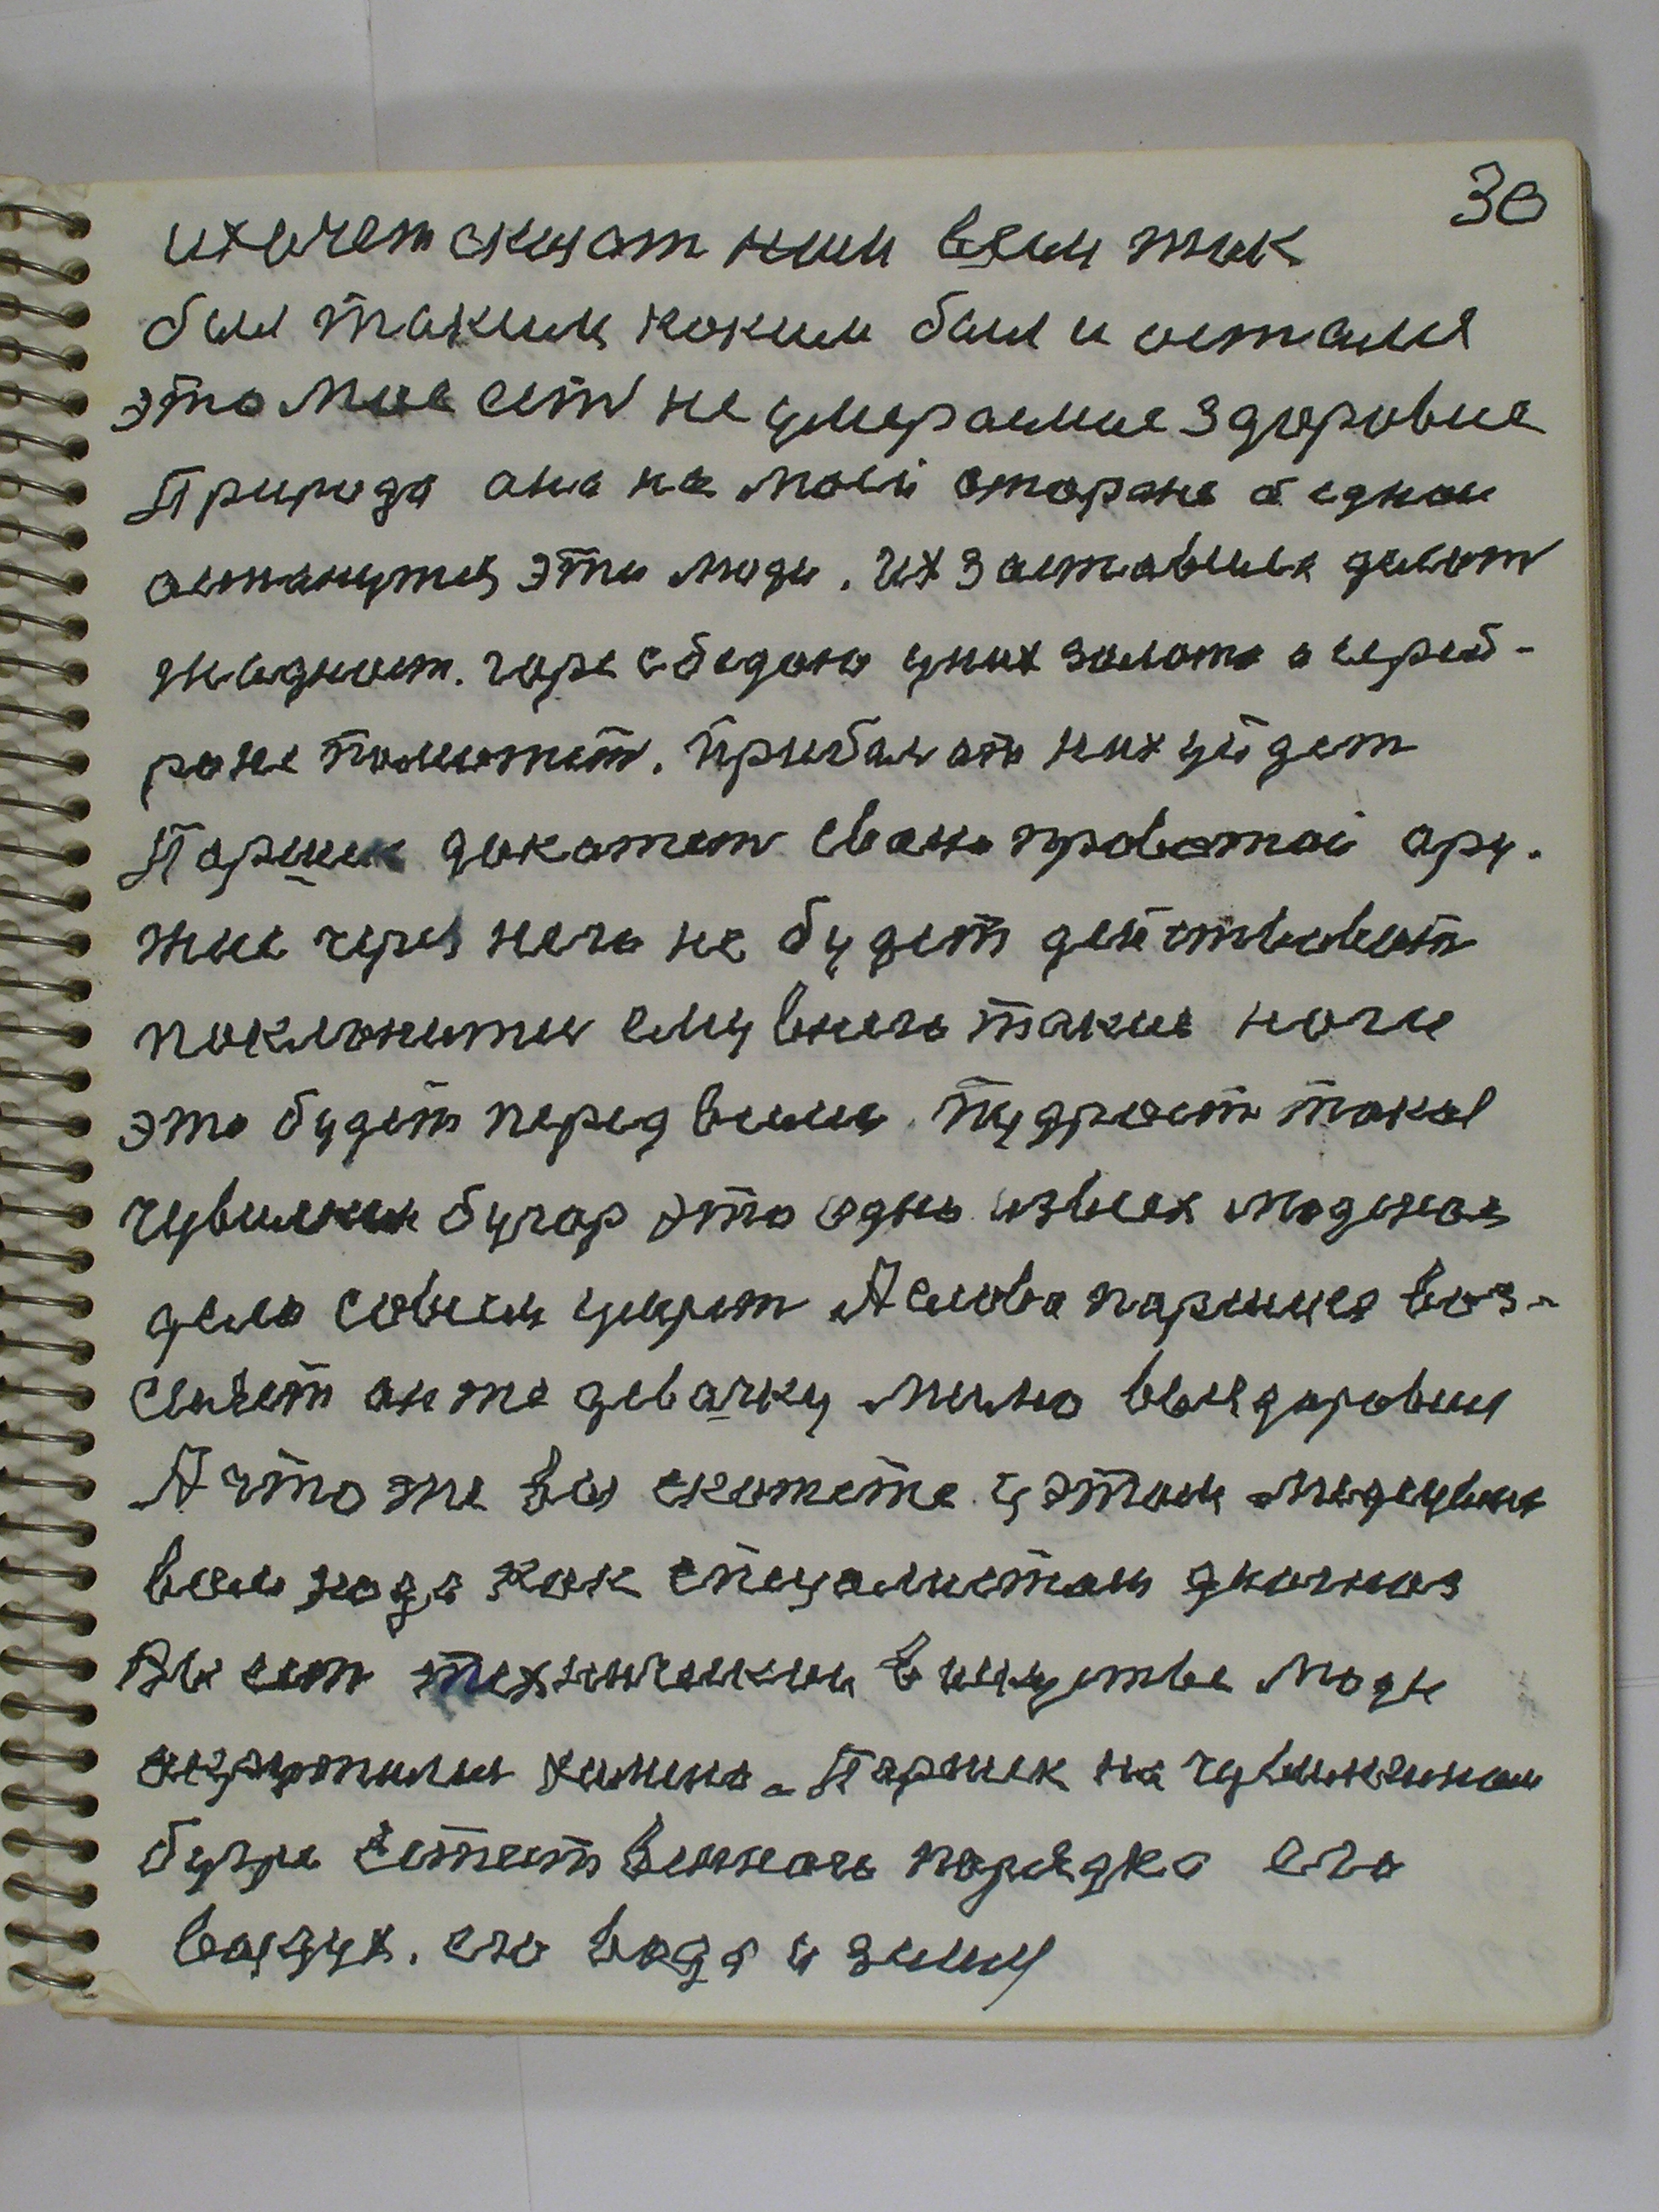 30
ихочет сказат нам всем так
был таким каким был и остался
это мое ест не умераемае здоровие
Природа она на маей старане а бедном
астанутся эти люди. их заставила делат
жадност. горе с бедою у них золото и сереб-
роне поможет. Прибыл от них уйдет
Паршек дакажет сваю правотой ару-
жие через него не будет действоват
поклонится ему внего такие ноги
это будет перед всеми. Мудрост такая
чувилкин бугор это одно из всех людское
дело совсем умрет А слова паршека воз-
он же девачку лично
А что же вы скажете у этом медецина
вам надо как специалистам диогноз
Вы ест технически в искустве люди
химию. Паршек на чувилкином
бугре естественнаго порядка его
воздух. его вода и землю